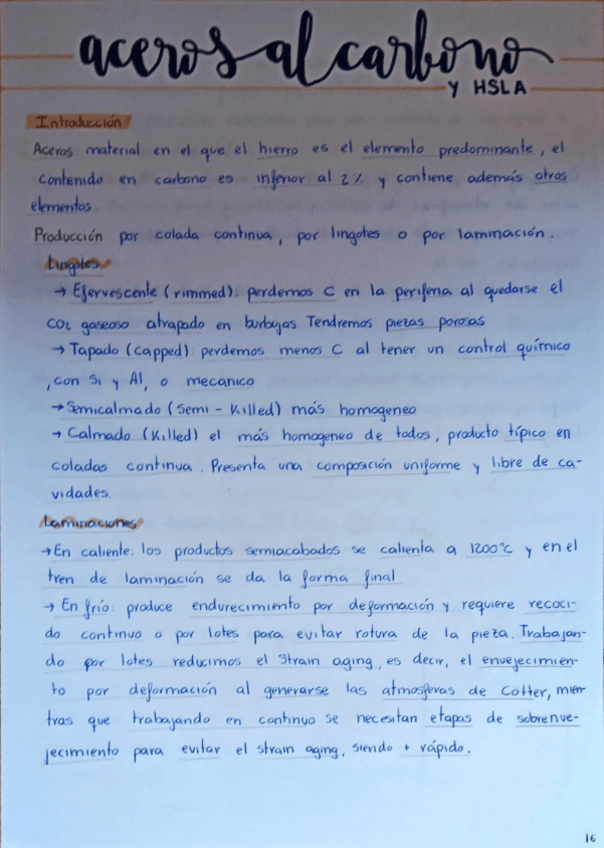 aceros al carbono
Y HSLA
Introducción
Aceros material en el que el hierro es el elemento predominante, el
contenido en carbono es inferior al 2% y contiene además otros
elementos.
Producción por colada continua, por lingotes o por laminación.
Lingotes
→ Efervescente (rimmed): perdemos C en la periferia al quedarse el
CO2 gaseoso atrapado en burbujas. Tendremos piezas porosas
→ Tapado (capped) perdemos menos C al tener un control químico
, con Si y Al, o mecanico
→ Semicalmado (Semi - Killed) más homogeneo
→ Calmado (Killed) el más homogeneo de todos, producto típico en
coladas continua. Presenta una composición uniforme y libre de ca-
vidades.
Laminaciones
→ En caliente: los productos semiacabados se calienta a 1200°c y en el
tren de laminación se da la forma final
→ En frío: produce endurecimiento por deformación y requiere recoci-
do continuo o por lotes para evitar rotura de la pieza. Trabajan-
do por lotes reducimos el Strain aging, es decir, el envejecimien-
to por deformación al generarse las atmosferas de Cotter, mien-
tras que trabajando en continuo se necesitan etapas de sobrenve-
jecimiento para evitar el strain aging, siendo + rápido.
16